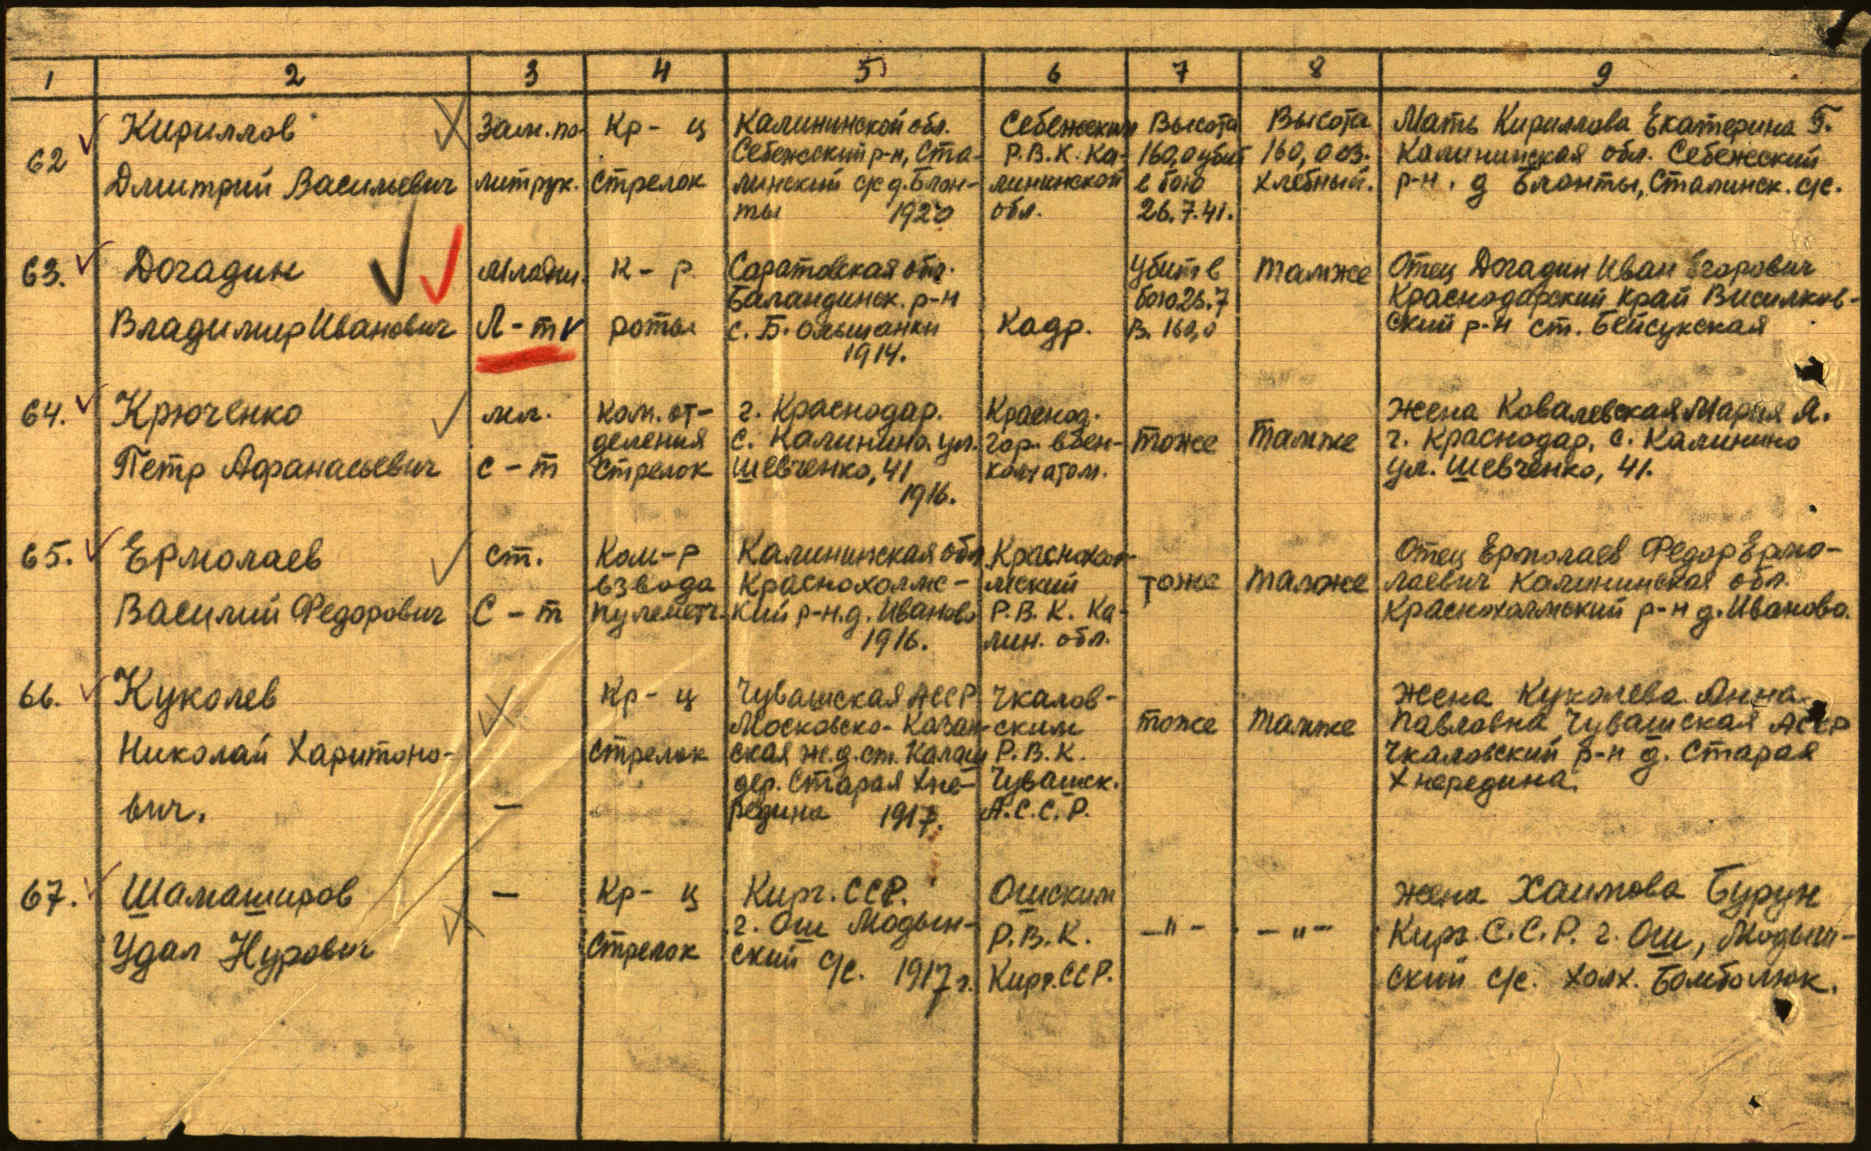 1 2 3 4 5 6 7 8 9
62
Кириллов
Дмитрий Васильевич
Зам. по-
литрук.
Кр- ц
стрелок
Калининской обл.
Себежский р-н, Ста-
линский с/с д. Блон-
ты 1920
Себежским
Р.В.К. Ка-
лининской
обл.
Высота
160,0 убит
в бою
26.7.41.
Высота
160,0 оз.
Хлебный.
Мать Кириллова Екатерина Г.
Калининская обл. Себежский
р-н. д Блонты, Сталинск. с/с.
63.
Догадин
Владимир Иванович
младш.
Л-т
к- р
роты
Саратовская обл.
Баландинск. р-н
с. Б. Ольшанки
1914.
Кадр.
убит в
бою 26.7
В. 160,0
там же
Отец Догадин Иван Егорович
Краснодарский край Висилков-
ский р-н ст. Бейсукская
64.
Крюченко
Петр Афанасьевич
мл.
с-т
ком. от-
деления
стрелок
г. Краснодар.
с. Калинино. ул.
Шевченко, 41
1916.
Краснод.
гор. воен-
коматом.
тоже
там же
Жена Ковалевская Мария А.
г. Краснодар, с. Калинино
ул. Шевченко, 41.
65.
Ермолаев
Василий Федорович
ст.
С-т
Ком-р
взвода
пулеметч.
Калининская обл
Краснохолмс-
кий р-н. д. Иваново
1916.
Краснохол-
мский
Р.В.К. Ка-
лин. обл.
тоже
там же
Отец Ермолаев Федор Ермо-
лаевич Калининская обл.
Краснохолмский р-н д. Иваново.
66.
Куколев
Николай Харитоно-
вич.
—
Кр- ц
стрелок
Чувашская АССР
Московско- Казан-
ская ж.д. ст. Калаш
дер. Старая Хне-
редина 1917.
Чкалов-
ским
Р.В.К.
Чувашск.
А.С.С.Р.
тоже
там же
Жена Куколева Анна
Павловна Чувашская АССР
Чкаловский р-н д. Старая
Хнередина.
67.
Шамаширов
Удал Нурович
—
Кр- ц
стрелок
Кирг. ССР.
г. Ош Модын-
ский с/с. 1917 г.
Ошским
Р.В.К.
Кирг. ССР.
—"—
—"—
Жена Хаитова Бурун
Кирг. С.С.Р. г. Ош, Модын-
ский с/с. холх. Бомболюк.